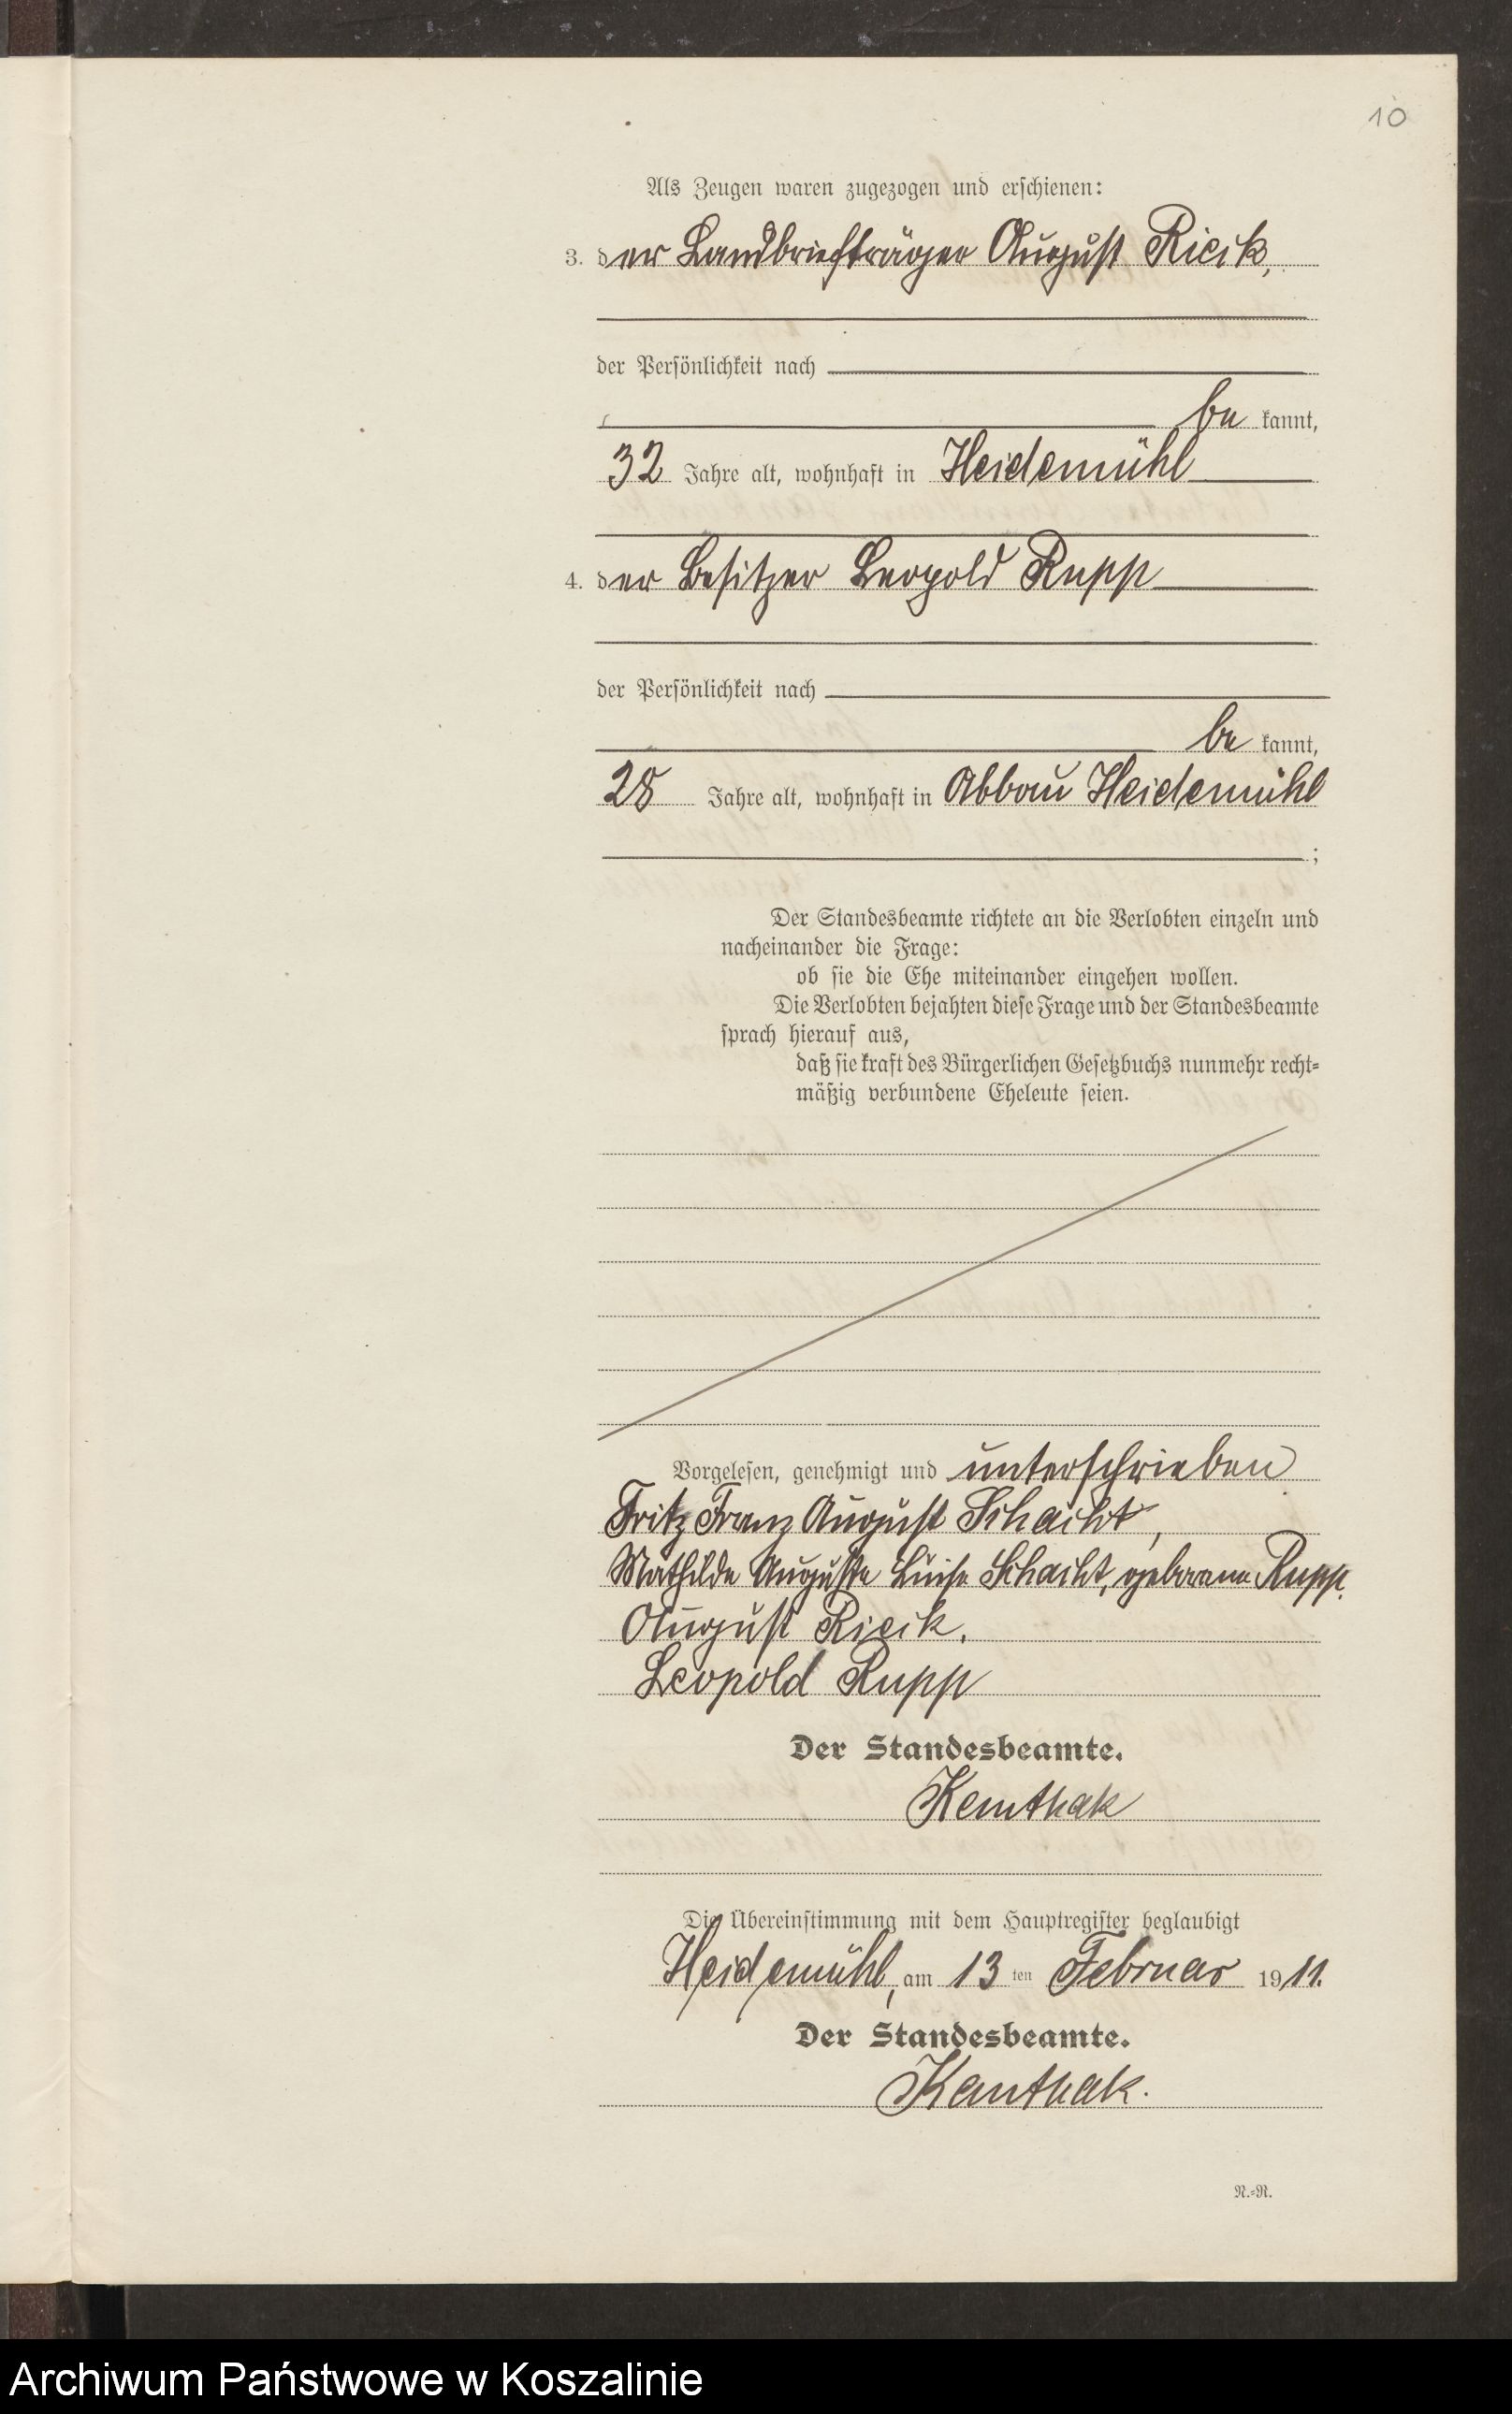 10
Als Zeugen waren zugezogen und erschienen:
3. der Landbriefträger August Ricik,
der Persönlichkeit nach
be kannt,
32 Jahre alt, wohnhaft in Heidemühl
4. der Besitzer Leopold Rupp
der Persönlichkeit nach
be kannt,
28 Jahre alt, wohnhaft in Abbau Heidemühl
;
Der Standesbeamte richtete an die Verlobten einzeln und
nacheinander die Frage:
ob sie die Ehe miteinander eingehen wollen.
Die Verlobten bejahten diese Frage und der Standesbeamte
sprach hierauf aus,
daß sie kraft des Bürgerlichen Gesetzbuchs nunmehr recht-
mäßig verbundene Eheleute seien.
Vorgelesen, genehmigt und unterschrieben
Fritz Franz August Schacht,
Mathilde Auguste Luise Schacht, geborene Rupp.
August Ricik.
Leopold Rupp
Der Standesbeamte.
Kanthak
Die Übereinstimmung mit dem Hauptregister beglaubigt
Heidemühl, am 13 ten Februar 1911.
Der Standesbeamte.
Kanthak.
N.-R.
Archiwum Państwowe w Koszalinie